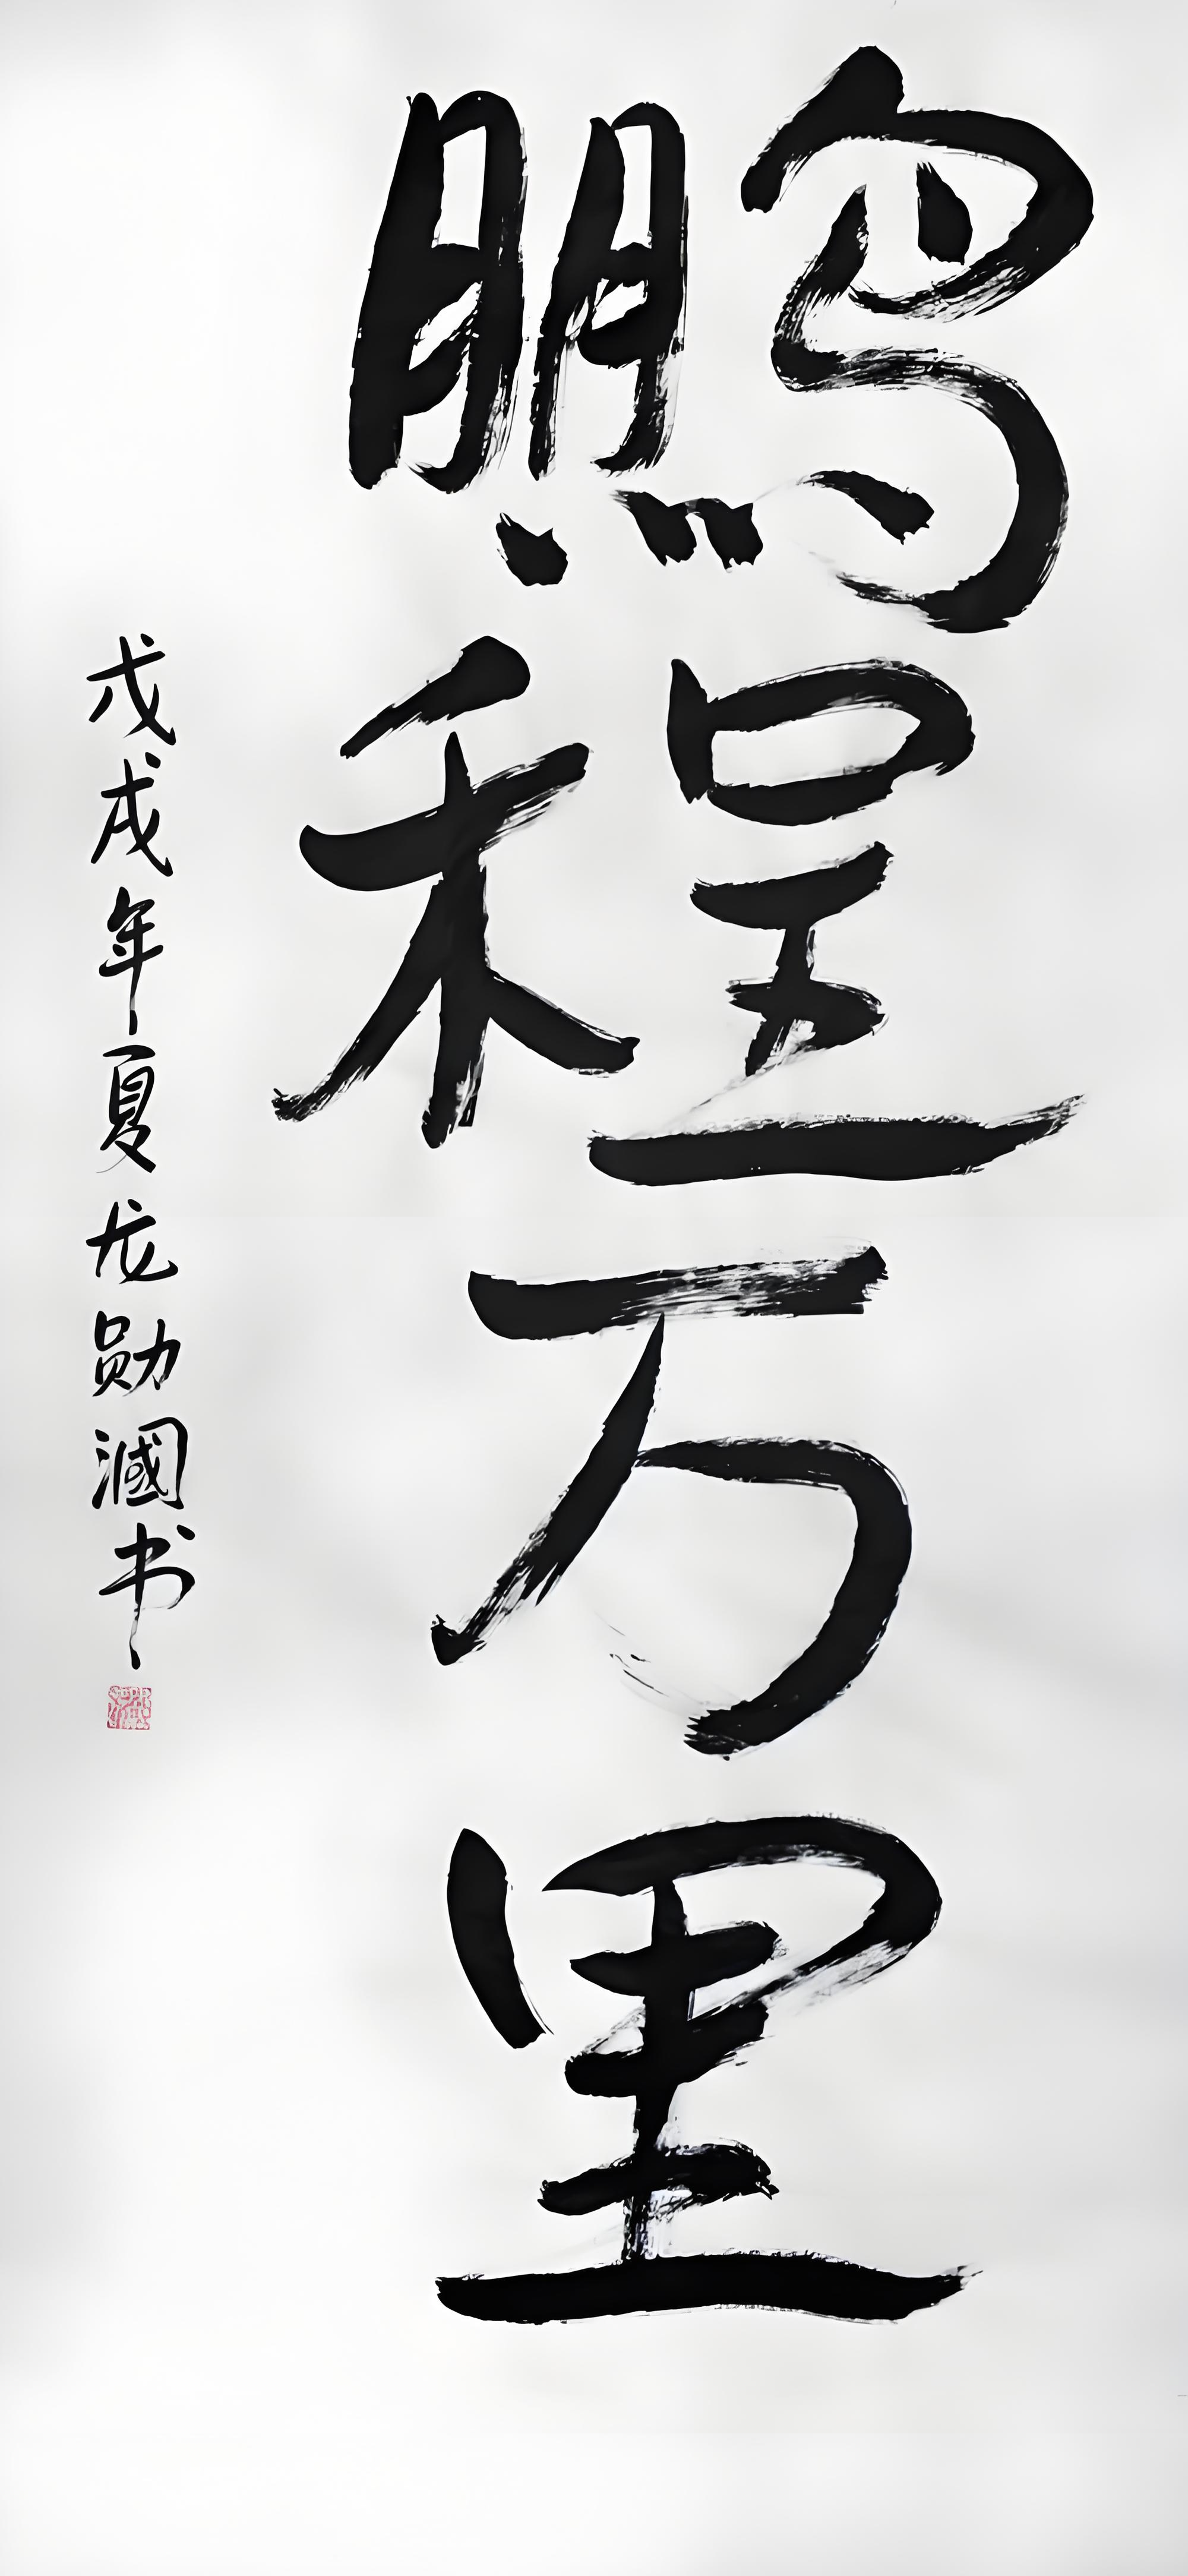 鹏程万里
戊戌年夏龙勋漍书